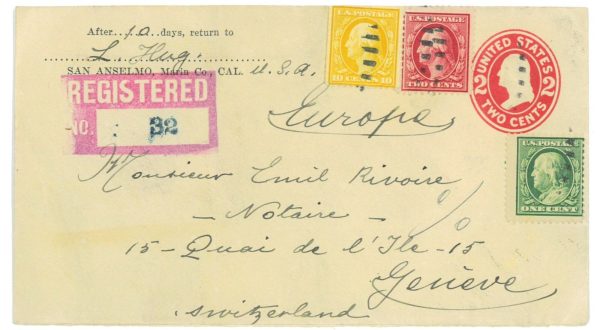 After 10 days, return to
L. Hug.
SAN ANSELMO, Marin Co., CAL. U.S.A.
REGISTERED
NO. 32
U.S. POSTAGE
10 CENTS 10
U.S. POSTAGE
TWO CENTS
UNITED STATES
2 2
TWO CENTS
Europa
U.S. POSTAGE
ONE CENT
Monsieur Emil Rivoire
- Notaire -
15 - Quai de l'Ile - 15
Genève
Switzerland